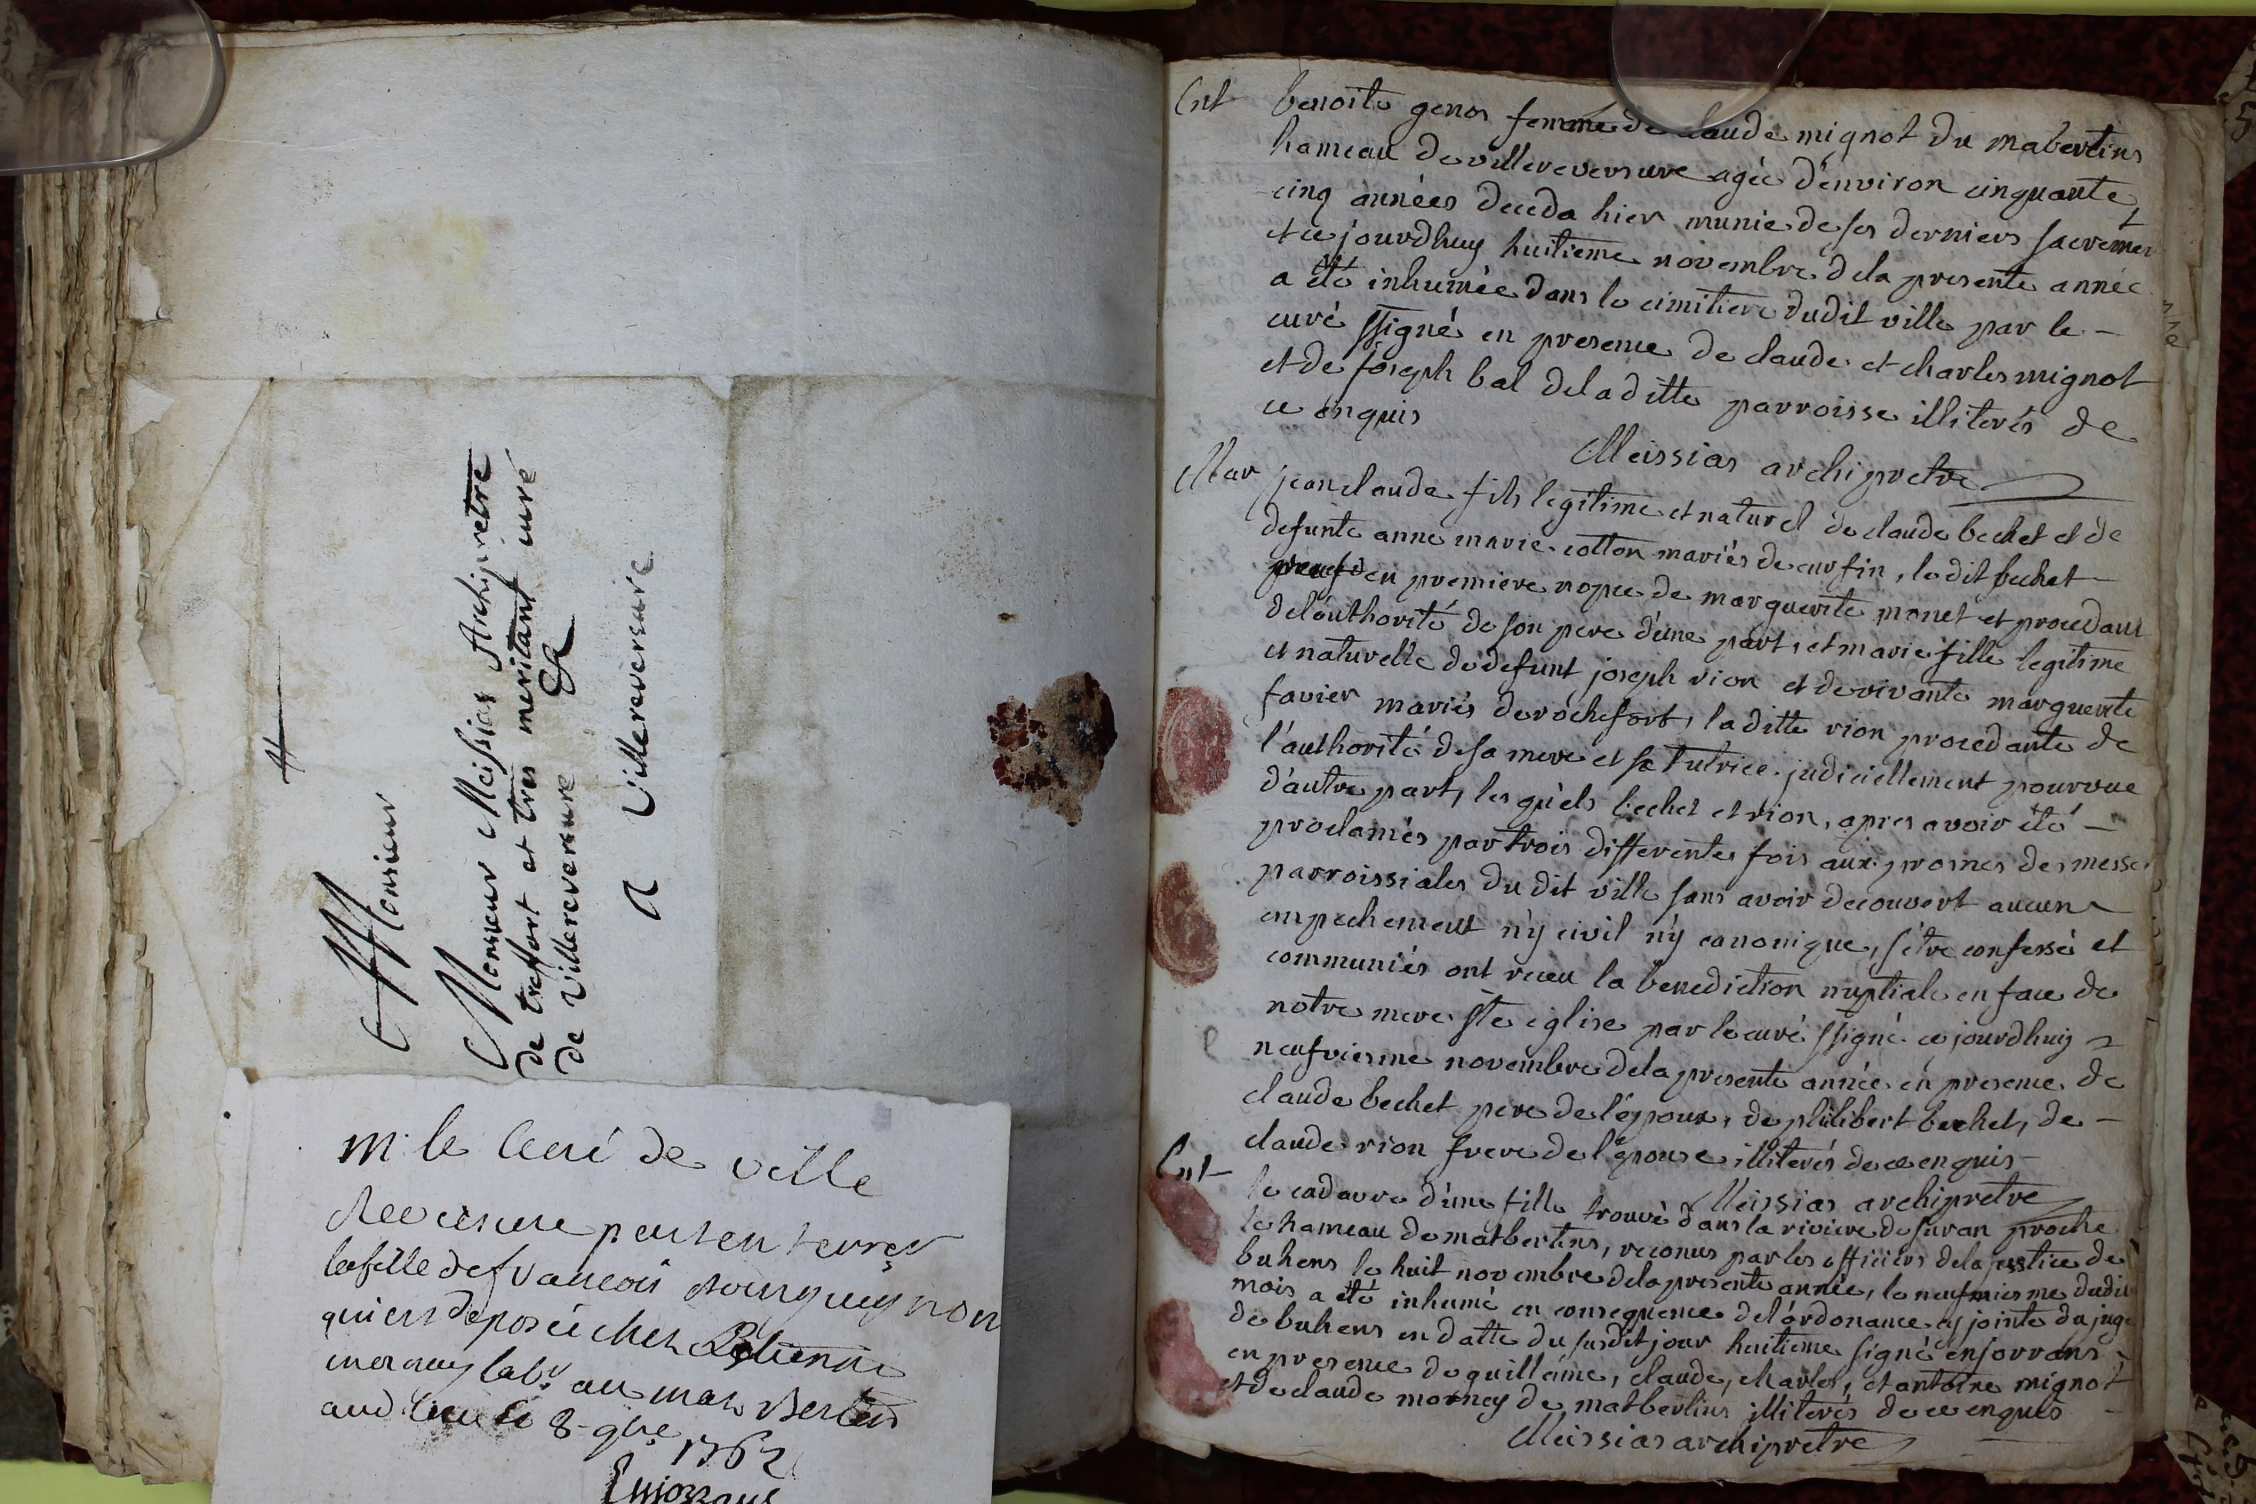 Monsieur
Monsieur Meissias Archipretre
de treffort et tres meritant curé
de Villereversure &
A Villereversure
m. le Curé de ville
Reversure peut enterrer
la fille de francois Bourguignon
qui est deposée chez Etienne
mornay labr. au mas Bertin
aud lieu le 8 9bre 1762
Enjorrans
Ent
benoite genos femme de claude mignot du mabertins
hameau de villereversure agée d'environ cinquante
cinq années deceda hier munie de ses derniers sacremen
et ce jourdhuy huitieme novembre dela presente année
a été inhumée dans le cimitiere dudit ville par le -
curé ssigné en presence de claude et charles mignot
et de joseph bal dela ditte parroisse illiterés de
ce enquis
Meissias archipretre
Mar
jean claude fils legitime et naturel de claude bechet et de
defunte anne marie cotton mariés de curfin, le dit bechet -
veuf en premiere nopce de marguerite monet et procedant
del'authorité de son pere d'une part, et marie fille legitime
et naturelle de defunt joseph rion et de vivante marguerite
favier mariés de rochefort, la ditte rion procedante de
l'authorité de sa mere et sa tutrice judiciellement pourvue
d'autre part, les quels bechet et rion, apres avoir été -
proclamés par trois differentes fois aux prones des messes
parroissiales du dit ville sans avoir decouvert aucun
empechement n'y civil n'y canonique, s'être confessé et
communiés ont receu la benediction nuptiale en face de
notre mere ste eglise par le curé ssigné ce jourdhuy
neufvieme novembre dela presente année en presence de
claude bechet pere de l'époux, de philibert bechet, de -
claude rion frere de l'épouse illiterés de ce enquis -
Meissias archipretre
Ent
le cadavre d'une fille trouvé dans la riviere de suran proche
le hameau de matbertins, reconus par les officiers dela justice de
buhens le huit novembre dela presente année, le neufvieme dudit
mois a été inhumé en consequence del'ordonance cy jointe du juge
de buhens en datte du susdit jour huitieme signé enjorrans
en presence de guilleime, claude, charles, et antoine mignot
et de claude mornay de matbertins illiterés de ce enquis
Meissias archipretre